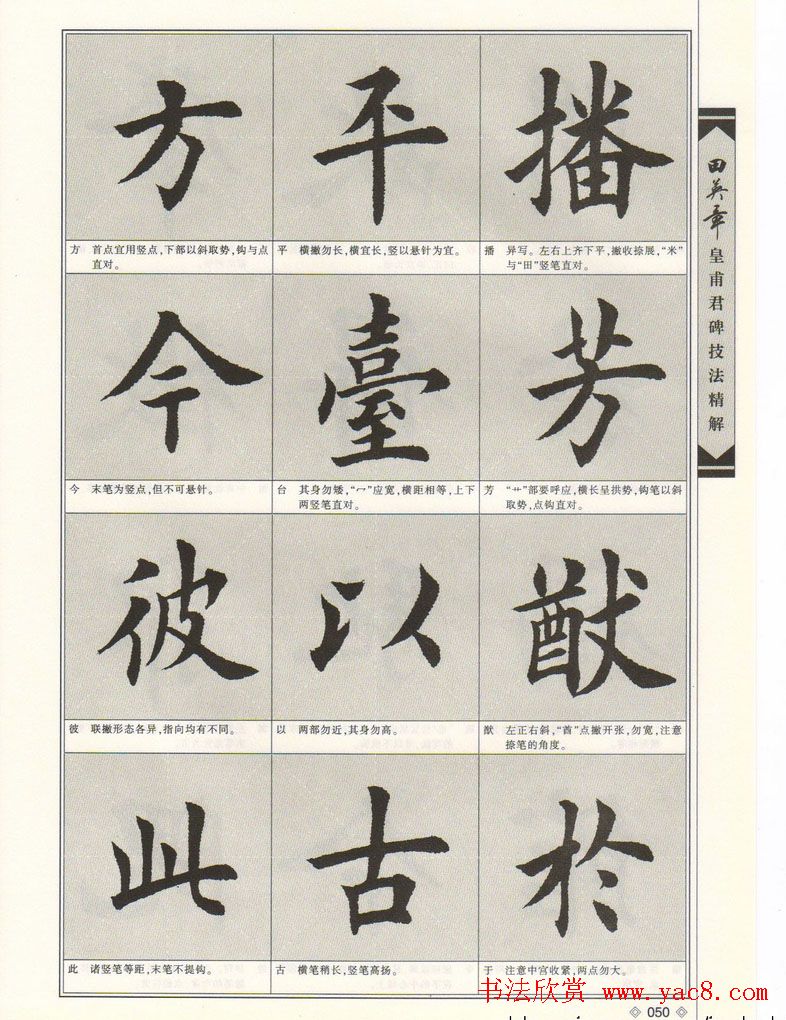 方 平 播
方 首点宜用竖点,下部以斜取势,钩与点
直对。
平 横撇勿长,横宜长,竖以悬针为宜。
播 异写。左右上齐下平,撇收捺展,“米”
与“田”竖笔直对。
今 臺 芳
今 末笔为竖点,但不可悬针。
台 其身勿矮,“冖”应宽,横距相等,上下
两竖笔直对。
芳 “艹”部要呼应,横长呈拱势,钩笔以斜
取势,点钩直对。
彼 以 猷
彼 联撇形态各异,指向均有不同。
以 两部勿近,其身勿高。
猷 左正右斜,“酋”点撇开张,勿宽,注意
捺笔的角度。
此 古 於
此 诸竖笔等距,末笔不提钩。
古 横笔稍长,竖笔高扬。
于 注意中宫收紧,两点勿大。
田英章
皇甫君碑技法精解
书法欣赏 www.yac8.com
050